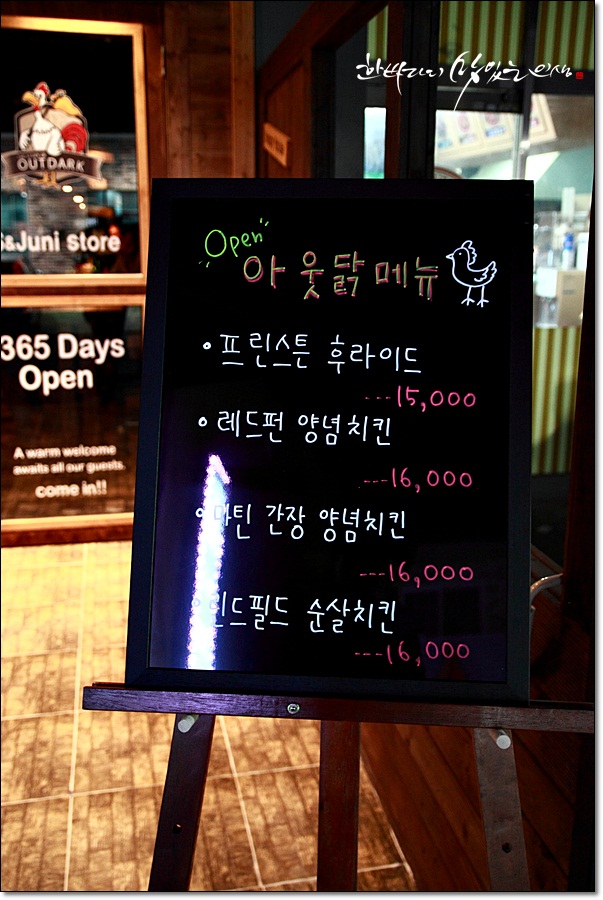 한빠리의 맛있는 인생
OUTDARK
&Juni store
365 Days
Open
A warm welcome
awaits all our guests.
come in!!
Open
아웃닭 메뉴
프린스튼 후라이드
---15,000
레드펀 양념치킨
---16,000
틴 간장 양념치킨
---16,000
린드필드 순살치킨
---16,000